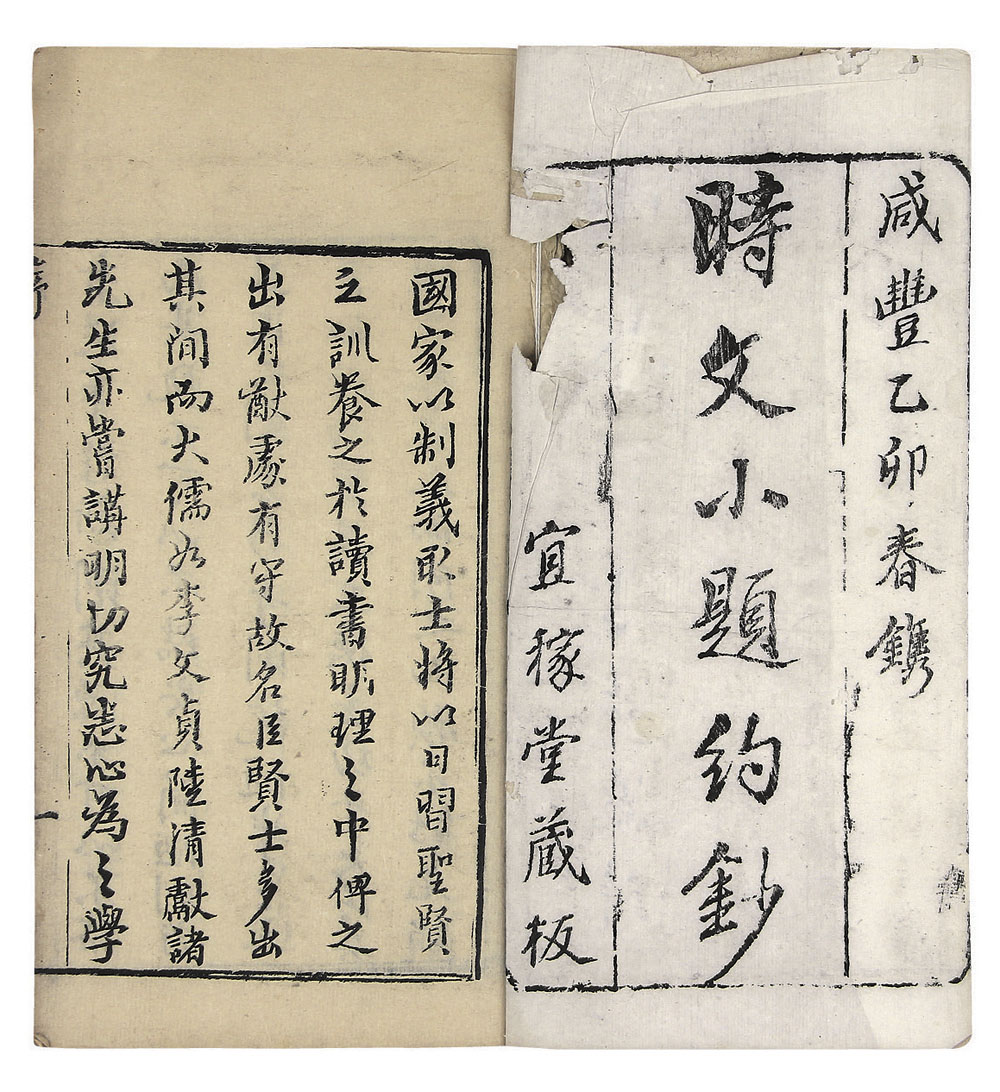 咸豐乙卯春鐫
時文小題約鈔
宜稼堂蔵板
國家以制義取士將以日習聖賢
之訓養之於讀書明理之中俾之
出有猷處有守故名臣賢士多出
其间而大儒如李文貞陸清獻諸
先生亦嘗講明切究悉心為之學
序
一